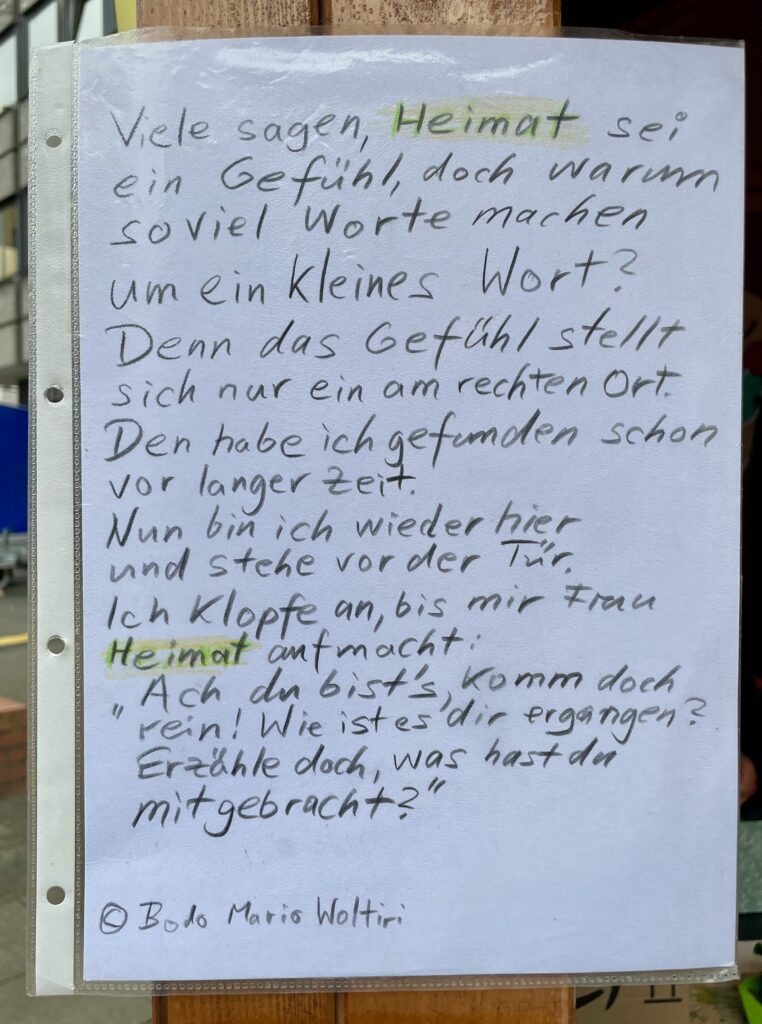 Viele sagen, Heimat sei
ein Gefühl, doch warum
soviel Worte machen
um ein kleines Wort?
Denn das Gefühl stellt
sich nur ein am rechten Ort.
Den habe ich gefunden schon
vor langer Zeit.
Nun bin ich wieder hier
und stehe vor der Tür.
Ich klopfe an, bis mir Frau
Heimat aufmacht:
„Ach du bist's, komm doch
rein! Wie ist es dir ergangen?
Erzähle doch, was hast du
mitgebracht?"
© Bodo Mario Woltiri